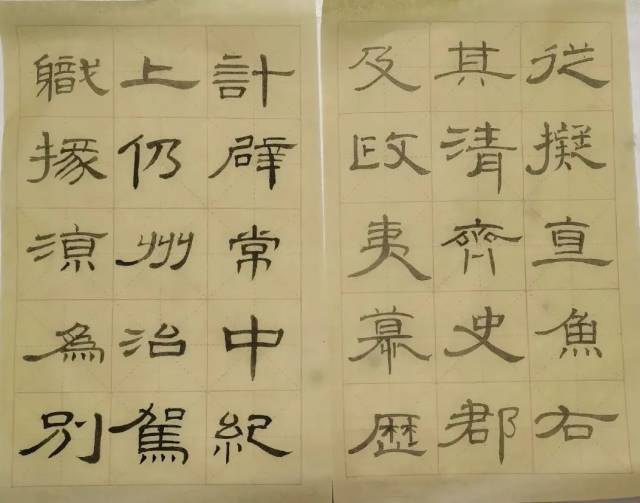 及其從
政清擬
夷齊直
慕史魚
歷郡右
職上計
掾仍辟
涼州常
為治中
別駕紀